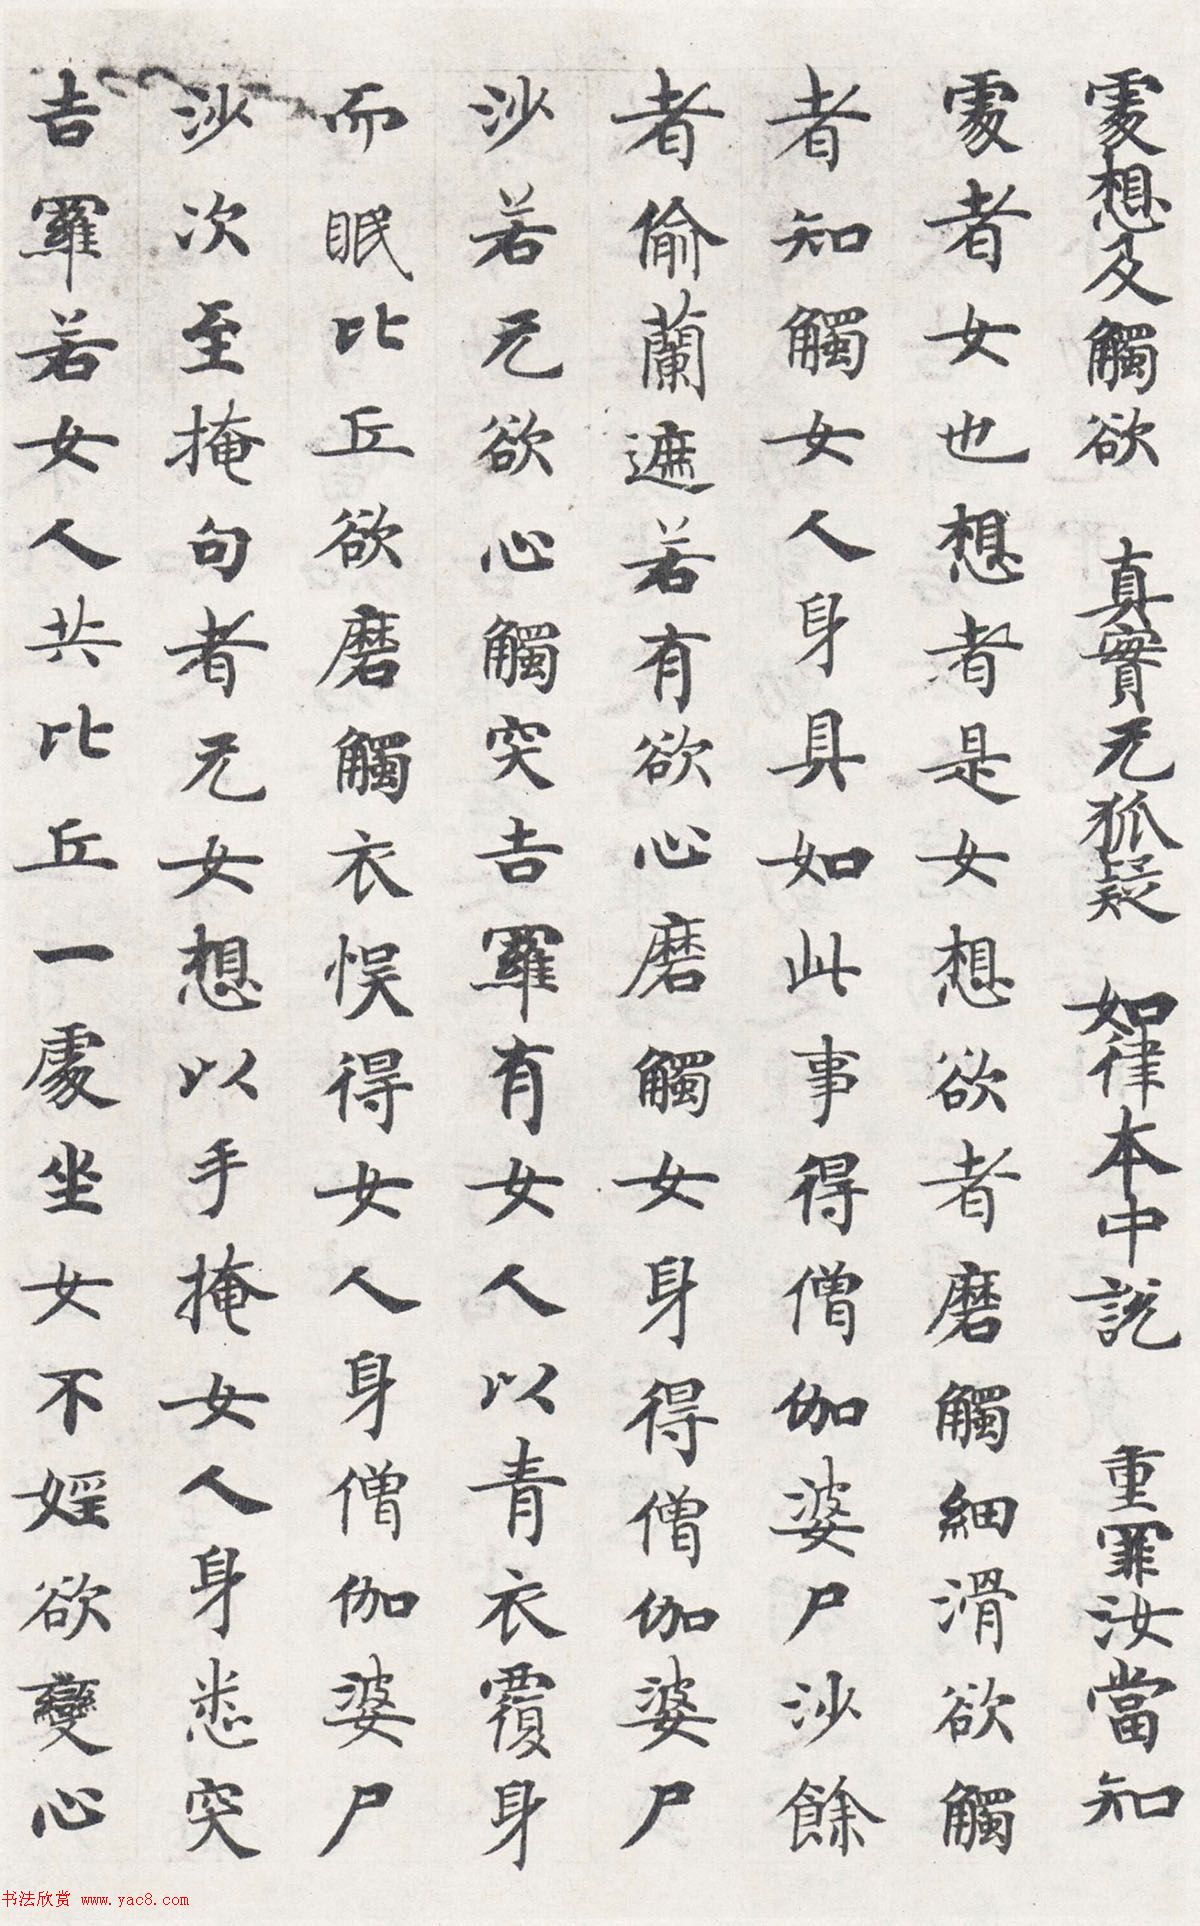 處想及觸欲 真實无狐疑 如律本中說 重罪汝當知
處者女也想者是女想欲者磨觸細滑欲觸
者知觸女人身具如此事得僧伽婆尸沙餘
者偷蘭遮若有欲心磨觸女身得僧伽婆尸
沙若无欲心觸突吉羅有女人以青衣覆身
而眠比丘欲磨觸衣悮得女人身僧伽婆尸
沙次至掩句者无女想以手掩女人身悉突
吉羅若女人共比丘一處坐女不婬欲變心
书法欣赏 www.yac8.com